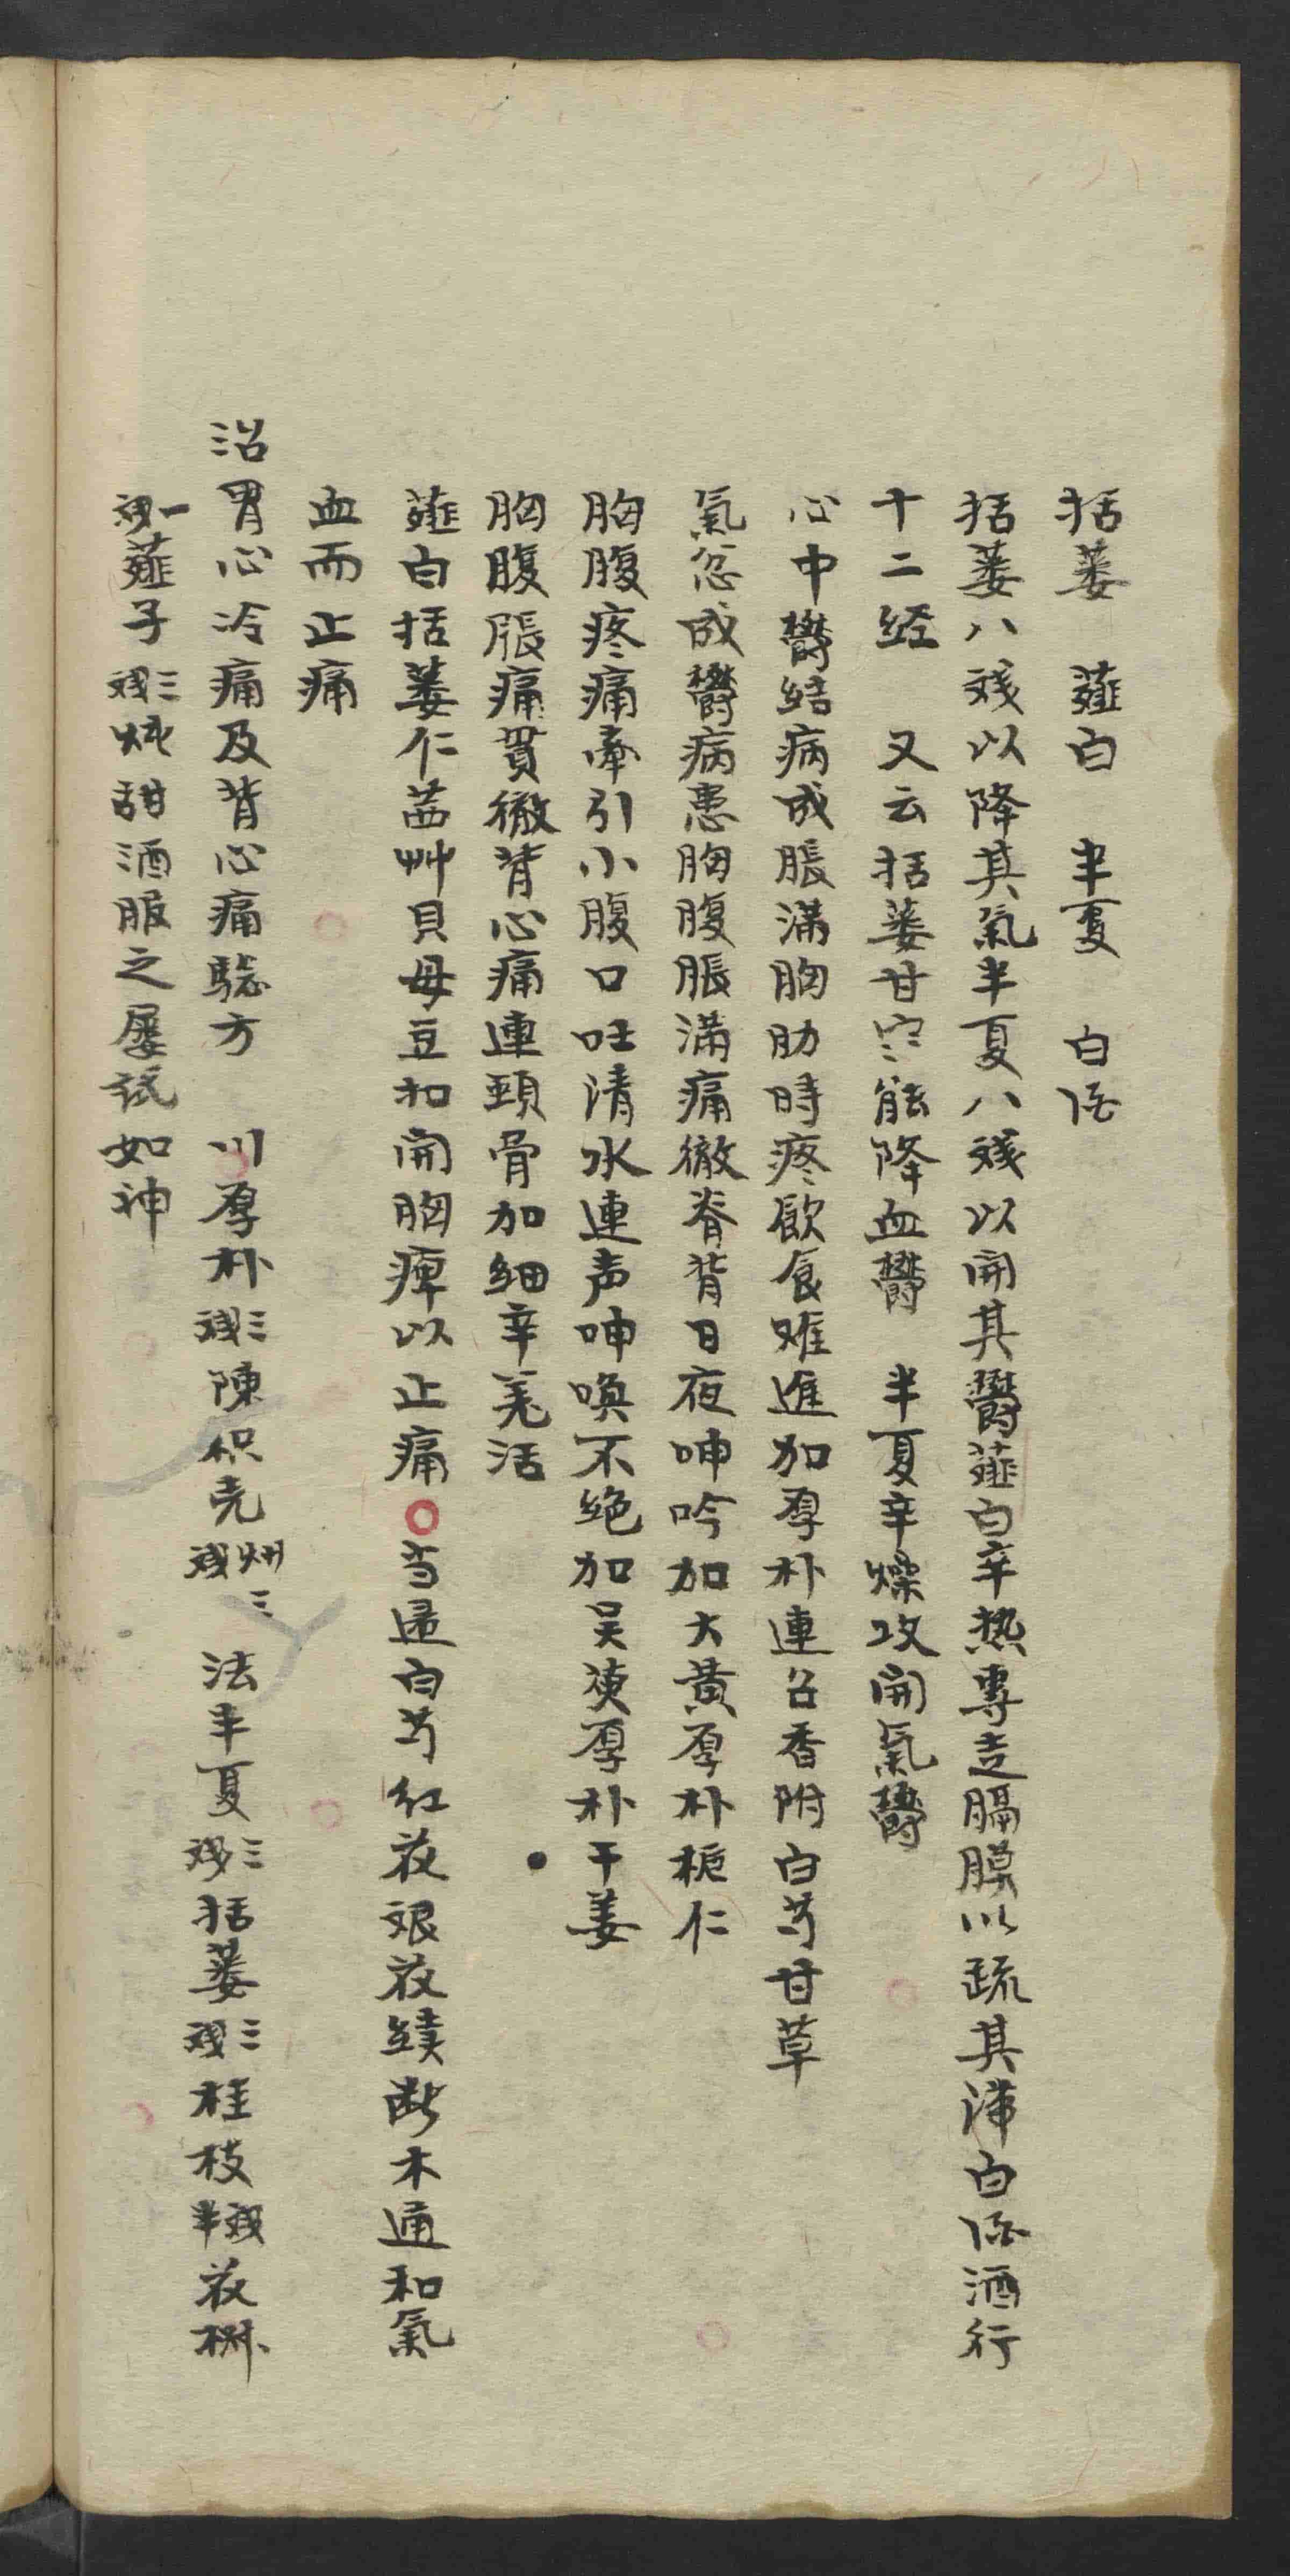 括蒌　薤白　半夏　白酒
括蒌八戔以降其氣半夏八戔以開其欝薤白辛热專走膈膜以疏其滞白酒酒行
十二经　又云括蒌甘寒能降血欝　半夏辛燥攻開氣欝
心中欝结病成脹滿胸肋時疼飲食难進加厚朴連召香附白芍甘草
氣忿成欝病患胸腹脹滿痛徹脊背日夜呻吟加大黃厚朴梔仁
胸腹疼痛牽引小腹口吐清水連声呻喚不绝加吴萸厚朴干姜
胸腹脹痛貫徹背心痛連頸骨加细辛羌活
薤白括蒌仁茜艸貝母豆扣開胸痺以止痛○当歸白芍红花艮花續断木通和氣
血而止痛
治胃心冷痛及背心痛驗方　川厚朴三戔陳枳壳炒三戔　法半夏三戔括蒌三戔桂枝半戔花椒
一戔薤子三戔炖甜酒服之屡試如神